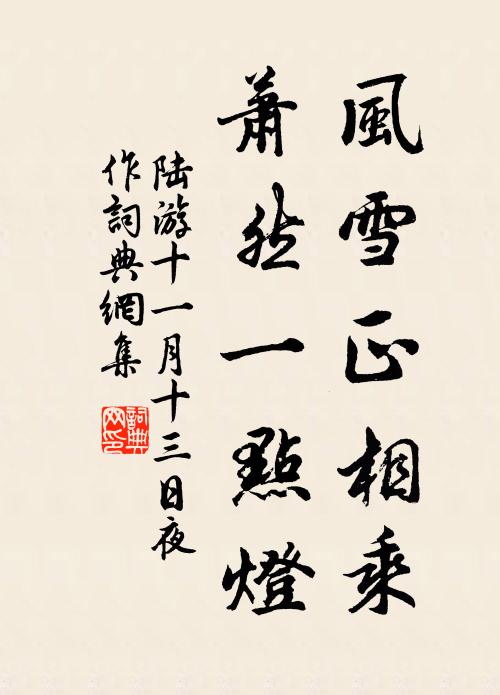 風雪正相乘
蕭然一點燈
陸游十一月十三日夜
作詞典網集
詞典网印